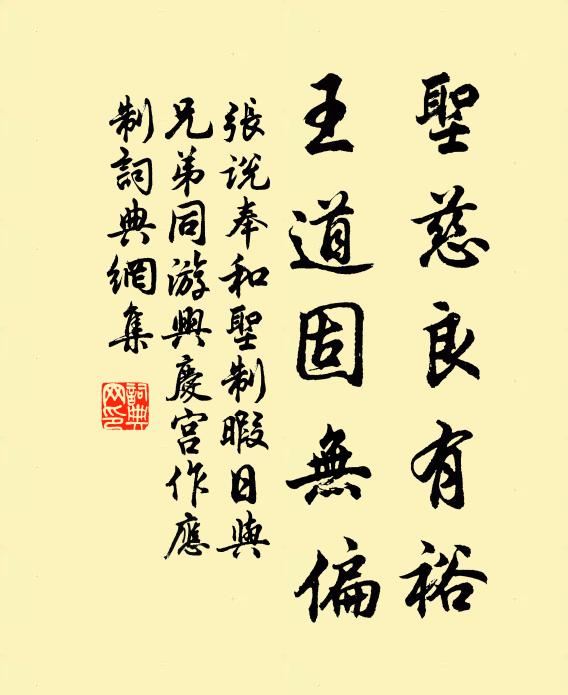 聖慈良有裕
王道固無偏
張説奉和聖制暇日與
兄弟同游興慶宮作應
制詞典網集
詞典
网印